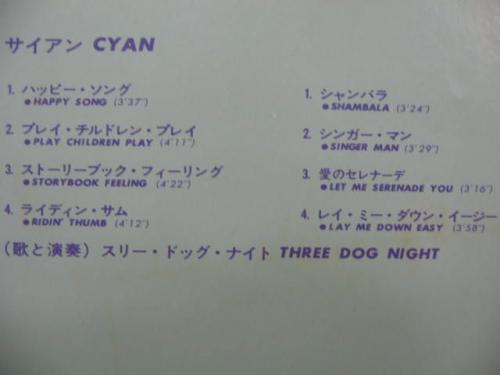 サイアン CYAN
1. ハッピー・ソング
●HAPPY SONG (3'37")
2. プレイ・チルドレン・プレイ
●PLAY CHILDREN PLAY (4'11")
3. ストーリーブック・フィーリング
●STORYBOOK FEELING (4'22")
4. ライディン・サム
●RIDIN' THUMB (4'12")
1. シャンバラ
●SHAMBALA (3'24")
2. シンガー・マン
●SINGER MAN (3'29")
3. 愛のセレナーデ
●LET ME SERENADE YOU (3'16")
4. レイ・ミー・ダウン・イージー
●LAY ME DOWN EASY (3'58")
(歌と演奏) スリー・ドッグ・ナイト THREE DOG NIGHT